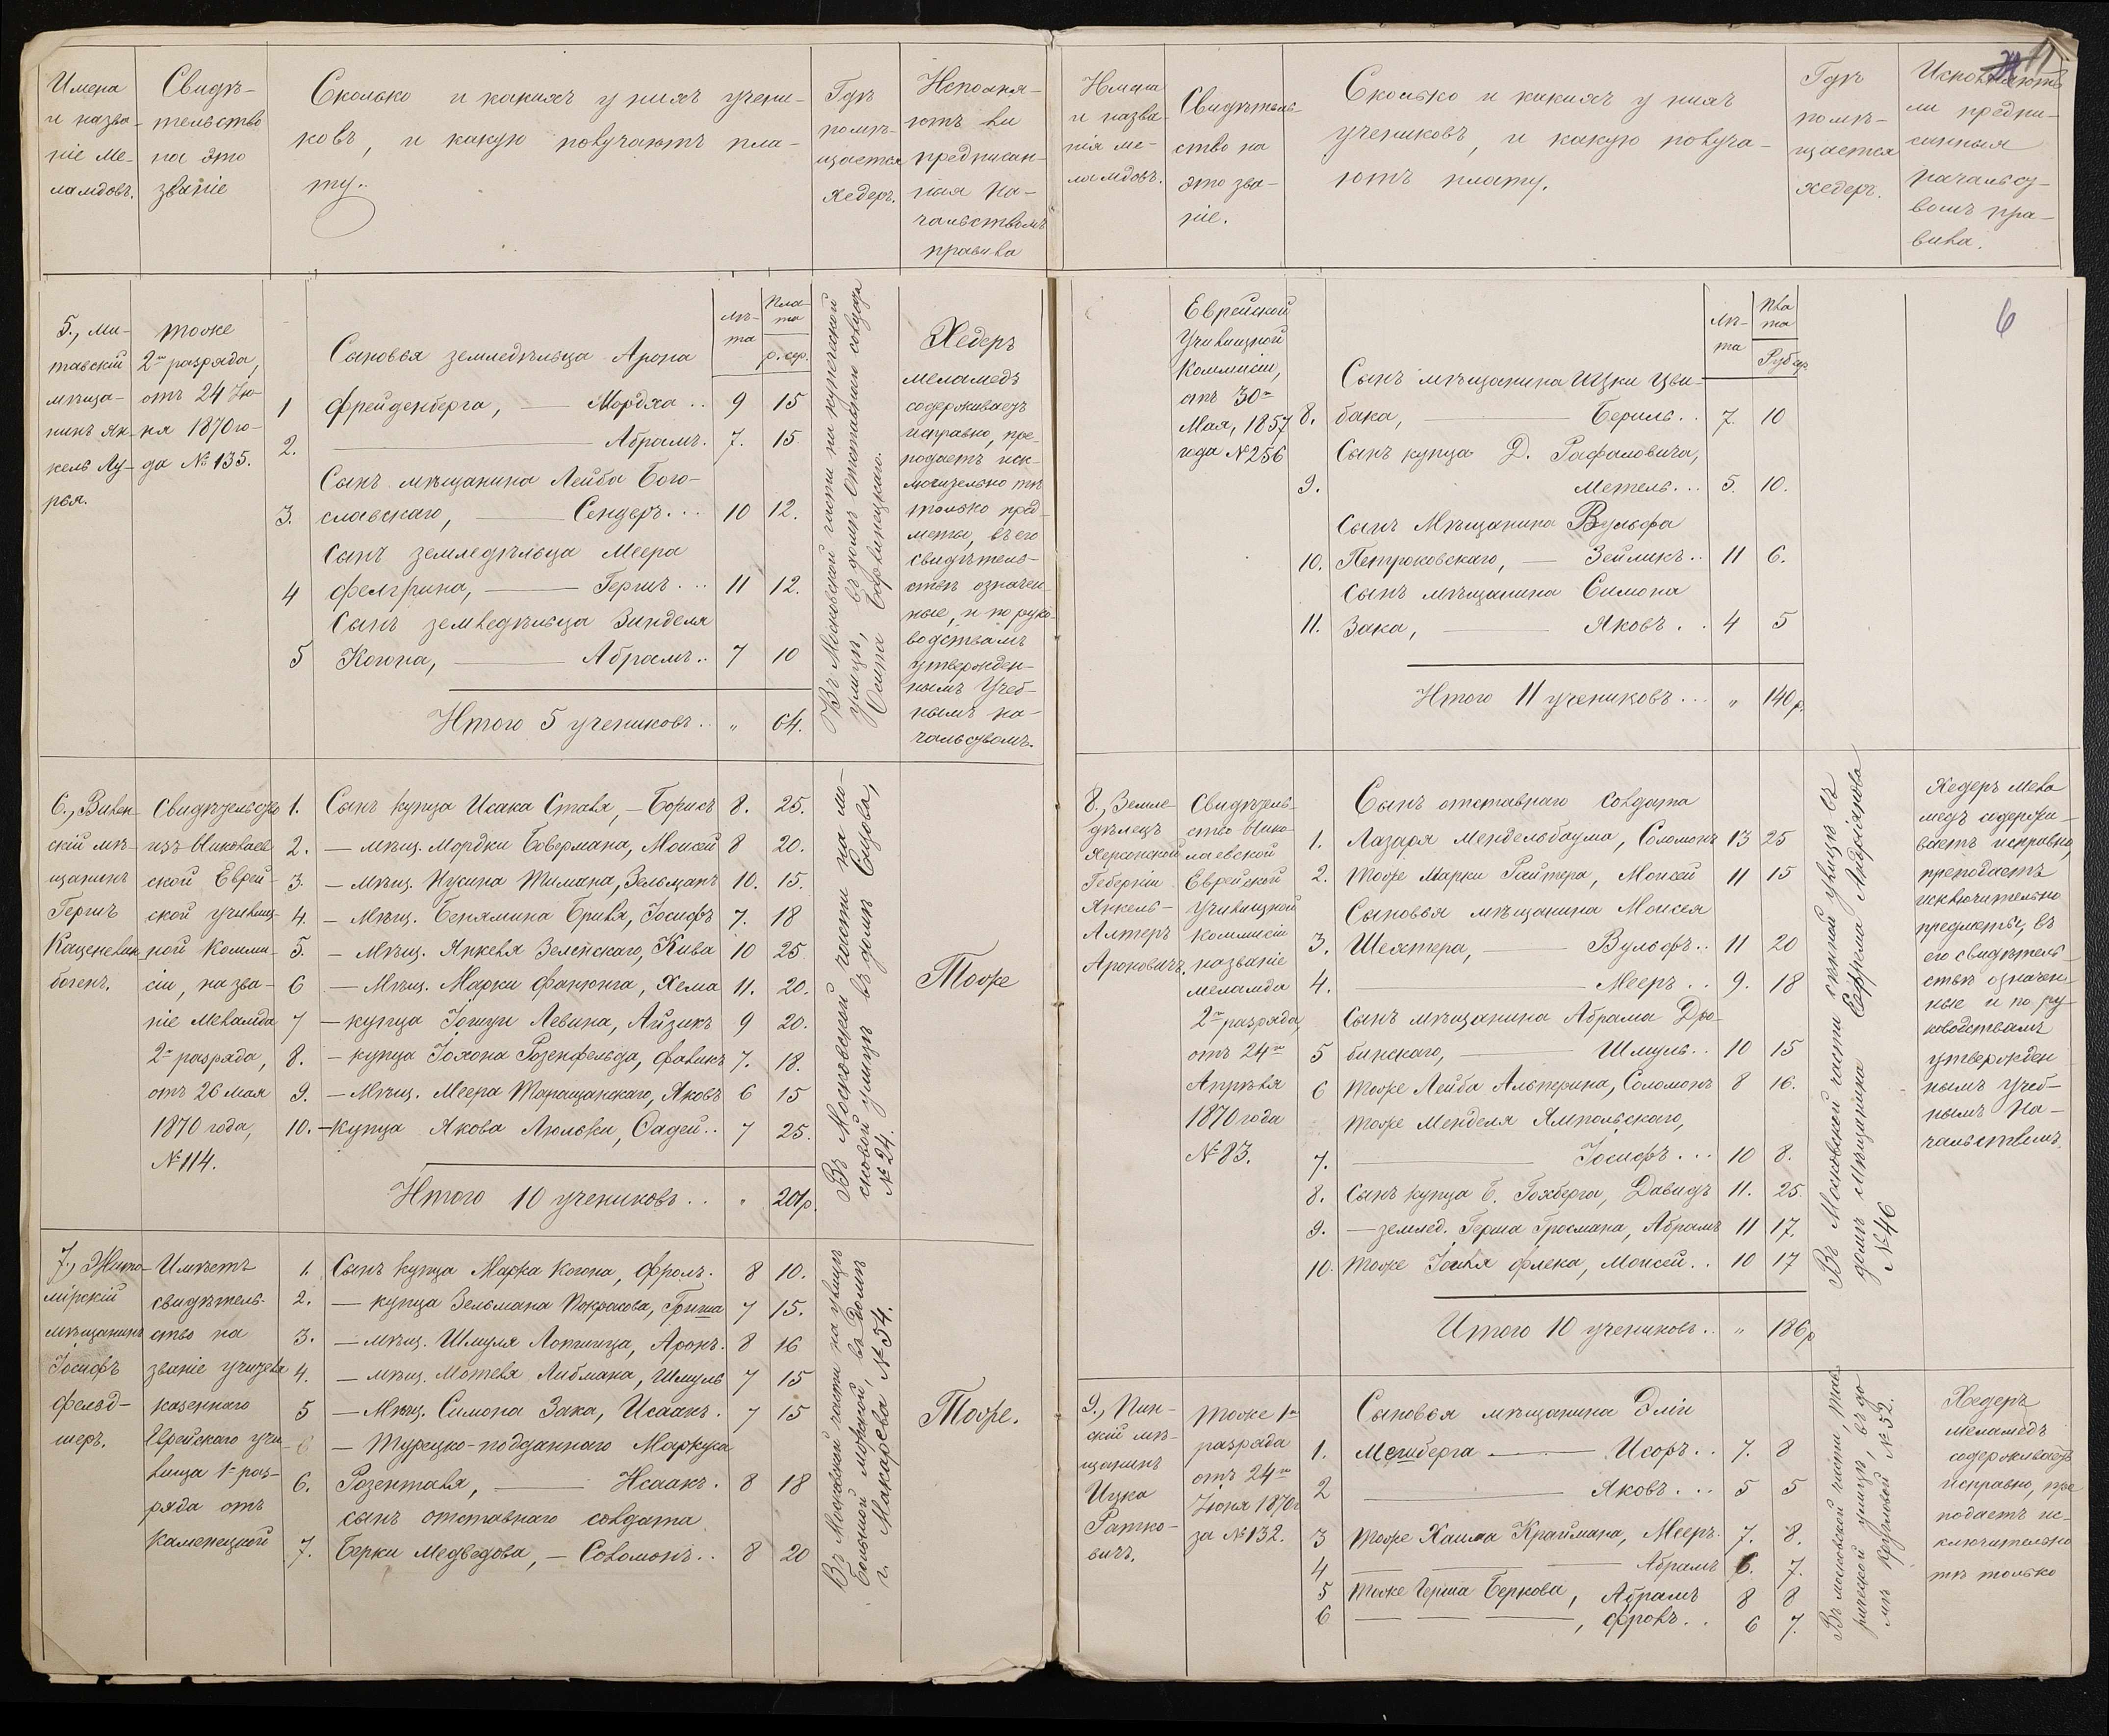 Имена
и назва-
ніе ме-
ламдовъ.
Свидѣ-
тельство
на это
званіе
Сколько и какихъ у нихъ учени-
ковъ, и какую получаютъ пла-
ту.
Гдѣ
помѣ-
щается
хедеръ.
Исполня-
ютъ ли
предписан-
ная на-
чальствомъ
правила
5., Ми-
тавскій
мѣща-
нинъ Ян-
кель Лу-
рья.
тоже
2го разряда,
отъ 24 Ію-
ня 1870 го-
да № 135.
лѣ-
та
пла-
та
р. сер.
Сыновья земледѣльца Арона
1 Фрейденберга, — Мордха .. 9 15
2. — Абрамъ. 7. 15.
Сынъ мѣщанина Лейба Бого-
3. славскаго, — Сендеръ ... 10 12.
Сынъ земледѣльца Меера
4 Фелгрина, — Гершъ ... 11 12.
Сынъ земледѣльца Зинделя
5 Когона, — Абрамъ .. 7 10
Итого 5 учениковъ .. „ 64.
Въ Московской части на купеческой
улицѣ, въ домѣ отставнаго солдата
Осипа Барвинецкаго.
Хедеръ
меламедъ
содерживаетъ
исправно, пре-
подаетъ иск-
лючительно тѣ
только пред-
меты, въ его
свидѣтель-
ствѣ означен-
ные, и по руко-
водствамъ
утвержден-
нымъ Учеб-
нымъ на-
чальствомъ.
6., Вилен-
скій мѣ-
щанинъ
Гершъ
Каценелен-
богенъ.
Свидѣтельство
изъ Николаев-
ской Еврей-
ской училищ-
ной Комми-
сіи, на зва-
ніе Меламда
2го разряда,
отъ 26 мая
1870 года,
№ 114.
1. Сынъ купца Исака Ставя, — Борисъ 8. 25.
2. — мѣщ. Мордки Бовермана, Моисей 8 20.
3. — Мѣщ. Нусина Тимана, Зельманъ 10. 15.
4. — Мѣщ. Бенямина Бриля, Іосифъ 7. 18
5. — Мѣщ. Янкеля Зеленскаго, Кива 10 25
6 — Мѣщ. Марки Фанюнга, Хема 11. 20.
7 — купца Іошуи Левина, Айзикъ 9 20.
8. — купца Іохона Розенфельда, Фаликъ 7. 18.
9. — Мѣщ. Меера Таращанскаго, Яковъ 6 15
10. — купца Якова Люльки, Садей .. 7 25.
Итого 10 учениковъ .. „ 201р.
Въ Московской части на мо-
сковой улицѣ въ домѣ Сицова,
№ 24.
Тоже
7., Жито-
мірскій
мѣщанинъ
Іосифъ
Фельд-
шеръ.
Имѣетъ
свидѣтель-
ство на
званіе учителя
казеннаго
Еврейскаго учи-
лища 1го раз-
ряда отъ
Каменецкой
1. Сынъ купца Марка Когона, Фроль. 8 10.
2. — купца Зельмана Покрасова, Гриша 7 15.
3. — мѣщ. Шмуля Лотшица, Аронъ. 8 16
4. — мѣщ. Мотеля Либмана, Шмуль 7 15
5 — Мѣщ. Симона Зака, Исаакъ. 7 15
— Турецко-подданнаго Маркуса
6. Розенталя, — Исаакъ. 8 18
сынъ отставнаго солдата
7. Берки Медведова, — Соломонъ .. 8 20
Въ Московской части на улицѣ
Большой морской, въ домѣ
г. Макарова № 54.
Тоже.
11
Имена
и назва-
нія ме-
ламдовъ.
Свидѣтель-
ство на
это зва-
ніе.
Сколько и какихъ у нихъ
учениковъ, и какую получа-
ютъ плату.
Гдѣ
помѣ-
щается
хедеръ.
Исполняютъ
ли предпи-
санныя
начальст-
вомъ пра-
вила.
6
Еврейской
Училищной
Коммисіи,
отъ 30го
Мая, 1857
года № 256
лѣ-
та
пла-
та
Руб. сер.
Сынъ мѣщанина Ицки Цви-
8. бака, — Бериль .. 7. 10
Сынъ купца Д. Рафаловича,
9. Метель ... 5. 10.
Сынъ Мѣщанина Вульфа
10. Петроковскаго, — Зейликъ .. 11 6.
Сынъ мѣщанина Симона
11. Зака, — Яковъ .. 4 5
Итого 11 учениковъ ... „ 140р.
8., Земле-
дѣлецъ
Херсонской
Губерніи
Янкель-
Алтеръ
Ароновичъ.
Свидѣтель-
ство Нико-
лаевской
Еврейской
Училищной
Коммисіи
названіе
меламда
2го разряда,
отъ 24го
Апрѣля
1870 года
№ 83.
Сынъ отставнаго солдата
1. Лазаря Мендельбаума, Соломонъ 13 25
2. Тоже Марки Райтера, Моисей 11 15
Сыновья мѣщанина Моисея
3. Шехтера, — Вульфъ .. 11 20
4. — Мееръ .. 9. 18
Сынъ мѣщанина Абрама Дро-
5 бинскаго, — Шмуль .. 10 15
6 Тоже Лейба Альперина, Соломонъ 8 16.
Тоже Менделя Ямпольскаго,
7. — Іосифъ ... 10 8.
8. Сынъ купца Б. Гохберга, Давидъ 11. 25.
9. — землед. Герша Гросмана, Абрамъ 11 17.
10. Тоже Іойля Флека, Моисей .. 10 17
Итого 10 учениковъ .. „ 186р
Въ Московской части улицѣ въ
домѣ мѣщанина Ефрема Андріянова
№ 46
Хедеръ мела-
медъ содержи-
ваетъ исправно,
преподаетъ
исключительно
предметы, въ
его свидѣтель-
ствѣ означен-
ные и по ру-
ководствамъ
утвержден-
нымъ учеб-
нымъ На-
чальствомъ.
9., Пин-
скій мѣ-
щанинъ
Ицка
Ратно-
вичъ.
Тоже 1го
разряда
отъ 24го
Іюня 1870г
за № 132.
Сыновья мѣщанина Эліи
1. Мешберга — Исоръ .. 7. 8
2 — Яковъ ... 5 5
3 Тоже Хаима Краймана, Мееръ. 7. 8.
4 — Абрамъ 6. 7.
5 Тоже Герша Беркова, Абрамъ 8 8
6 — , Фроль .. 6 7.
Въ московской части Тав-
рической улицѣ, въ до-
мѣ Кругловой № 52.
Хедеръ
меламедъ
содерживаетъ
исправно, пре
подаетъ ис-
ключительно
тѣ только